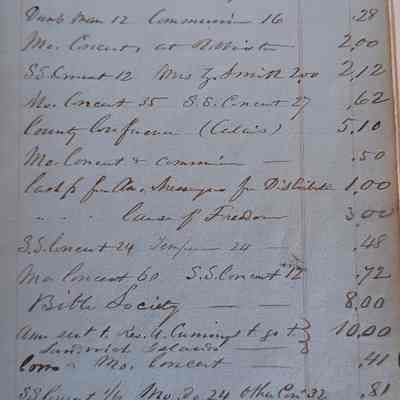 Dumb Man 12 Communion 16 .28
Mo. Concert, at 2.00
S.S. Concert 12 Mrs Smith 2.00 2,12
Mo. Concert 35 S.S. Concert 27 .62
County Conference (Calais) 5,10
Mo. Concert & Communion — .50
Cash pd for Am. Messenger for Distribution 1,00
" " " Cause of Freedom 3,00
S.S. Concert 24 24 — .48
Mo Concert 60 S.S. Concert 12 .72
Bible Society — — 8.00
Am sent to Rev. A. Cummings to go to } 10,00
Sandwich Islands —
Mo. Concert — .41
S.S. Concert Mo. do 24 Other Con 32 .81